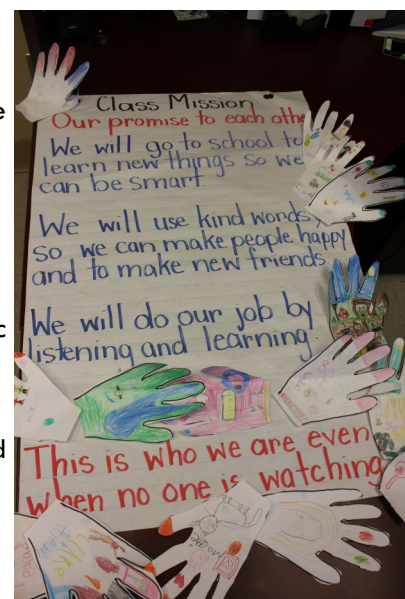 Class Mission
Our promise to each othe
We will go to school to
learn new things so we
can be smart.
We will use kind words,
so we can make people happy
and to make new friends.
We will do our job by
listening and learning.
This is who we are even
when no one is watching
I like